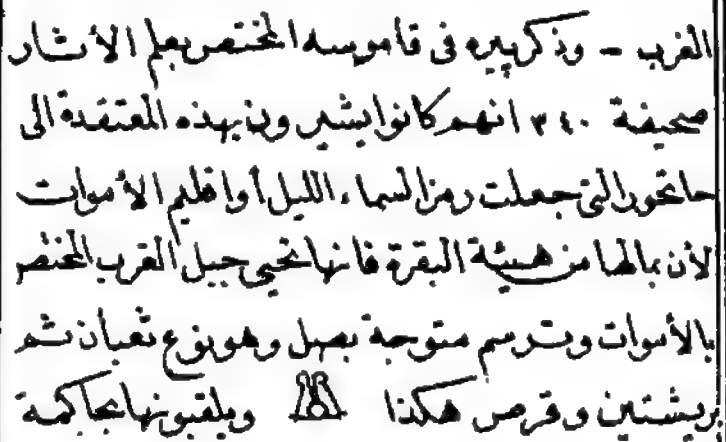 الغرب - وذكر بيره فى قاموسه المختصر بعلم الأثار
صحيفة ٣٤٠ انهم كانوا يشيرون بهذه المعتقدة الى
حاتحور التى جعلت رمز السماء الليل أو اقليم الأموات
لأن بمالها من هيئة البقرة فانها تحيى جبيل الغرب المختص
بالأموات وترسم متوجة بصل وهو نوع ثعبان ثم
بريشتين وقرص هكذا ويلقبونها بحاكمة